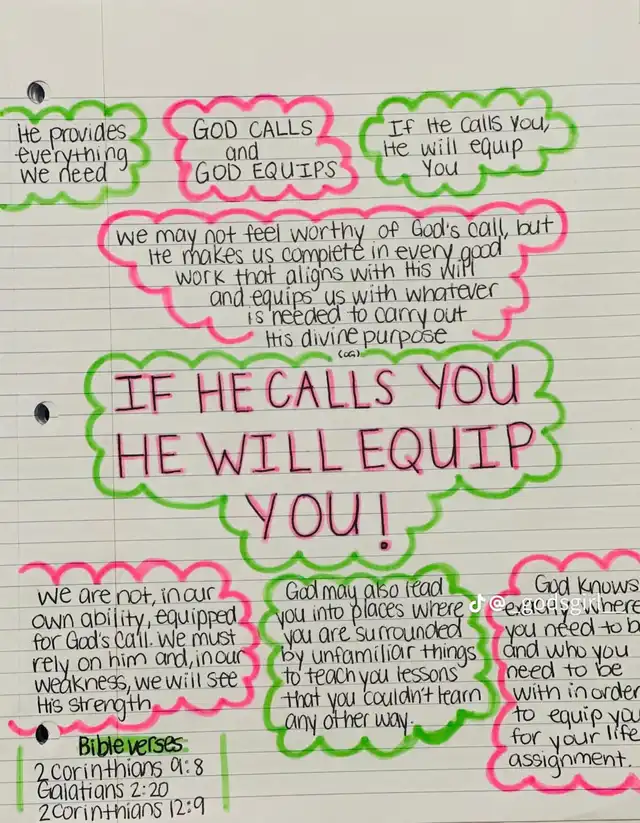 He provides
everything
we need
GOD CALLS
and
GOD EQUIPS
If He calls you,
He will equip
You
we may not feel worthy of God's call, but
He makes us complete in every good
work that aligns with His will
and equips us with whatever
is needed to carry out
His divine purpose
(OG)
IF HE CALLS YOU
HE WILL EQUIP
YOU!
we are not, in our
own ability, equipped
for God's call. We must
rely on him and, in our
weakness, we will see
His strength
God may also lead
you into places where
you are surrounded
by unfamiliar things
to teach you lessons
that you couldn't learn
any other way.
God knows
exactly where
you need to b
and who you
need to be
with in order
to equip you
for your life
assignment.
Bible verses:
2 Corinthians 9:8
Galatians 2:20
2 Corinthians 12:9